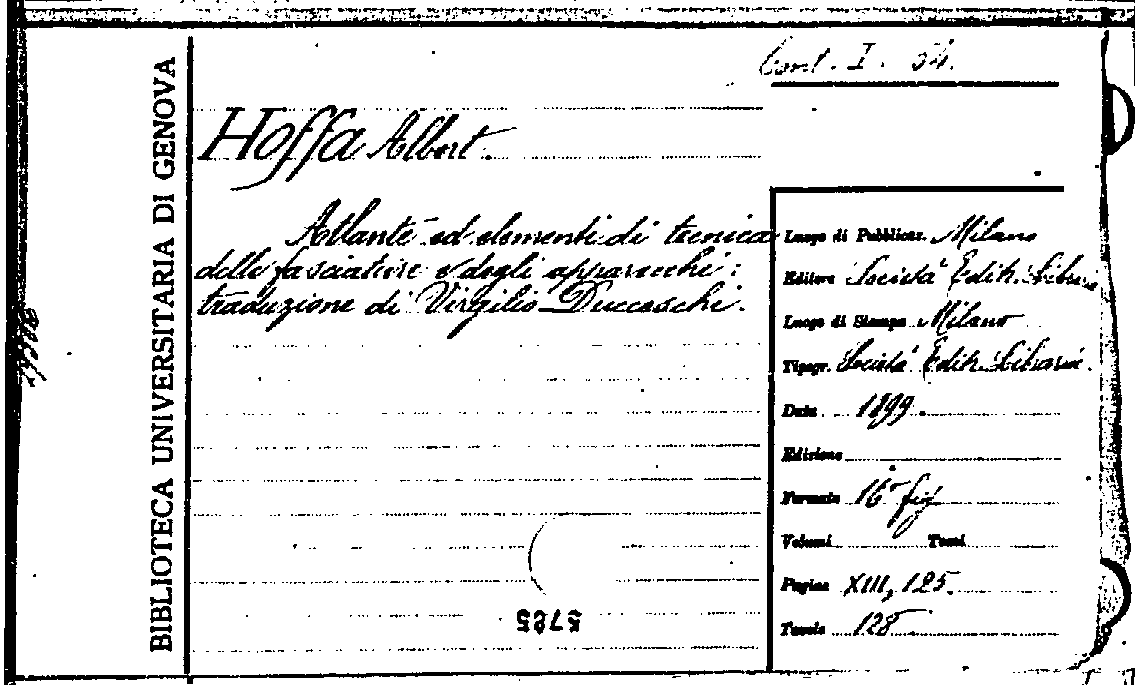 BIBLIOTECA UNIVERSITARIA DI GENOVA
Cont. I. 54.
Hoffa Albert.
Atlante ed elementi di tecnica
delle fasciature e degli apparecchi:
traduzione di Virgilio Ducceschi.
Luogo di Pubblicaz. Milano
Editore Società Editr. Libraria
Luogo di Stampa Milano
Tipogr. Società Editr. Libraria.
Data 1899.
Edizione
Formato 16° fig
Volumi Tomi
Pagine XIII, 125.
Tavole 128
5785